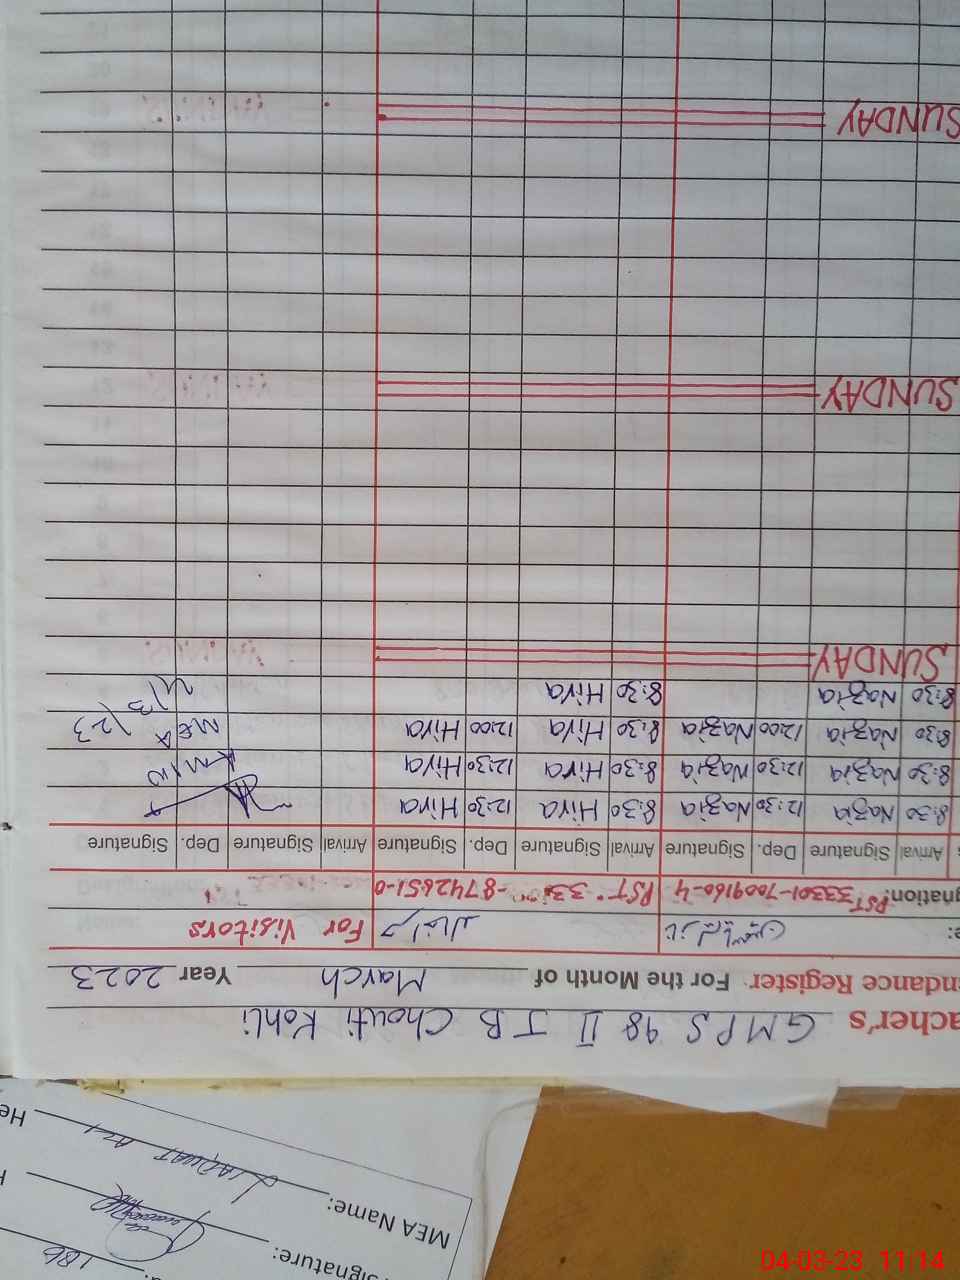 acher's GMPS 98 II JB Chouti Kohli
ndance Register For the Month of March Year 2023
e: نازلی یاسمین For Visitors
gnation: PST 33301-7009160-4 PST 33 -8742651-0
Arrival Signature Dep. Signature Arrival Signature Dep. Signature Arrival Signature Dep. Signature
8:30 Nazia 12:30 Nazia 8:30 Hira 12:30 Hira
8:30 Nazia 12:30 Nazia 8:30 Hira 12:30 Hira
8:30 Nazia 12:00 Nazia 8:30 Hira 12:00 Hira MEA
8:30 Nazia 8:30 Hira
SUNDAY
SUNDAY
SUNDAY
MEA Name: LIAQUAT ALI He
ignature:
186
04-03-23 11:14